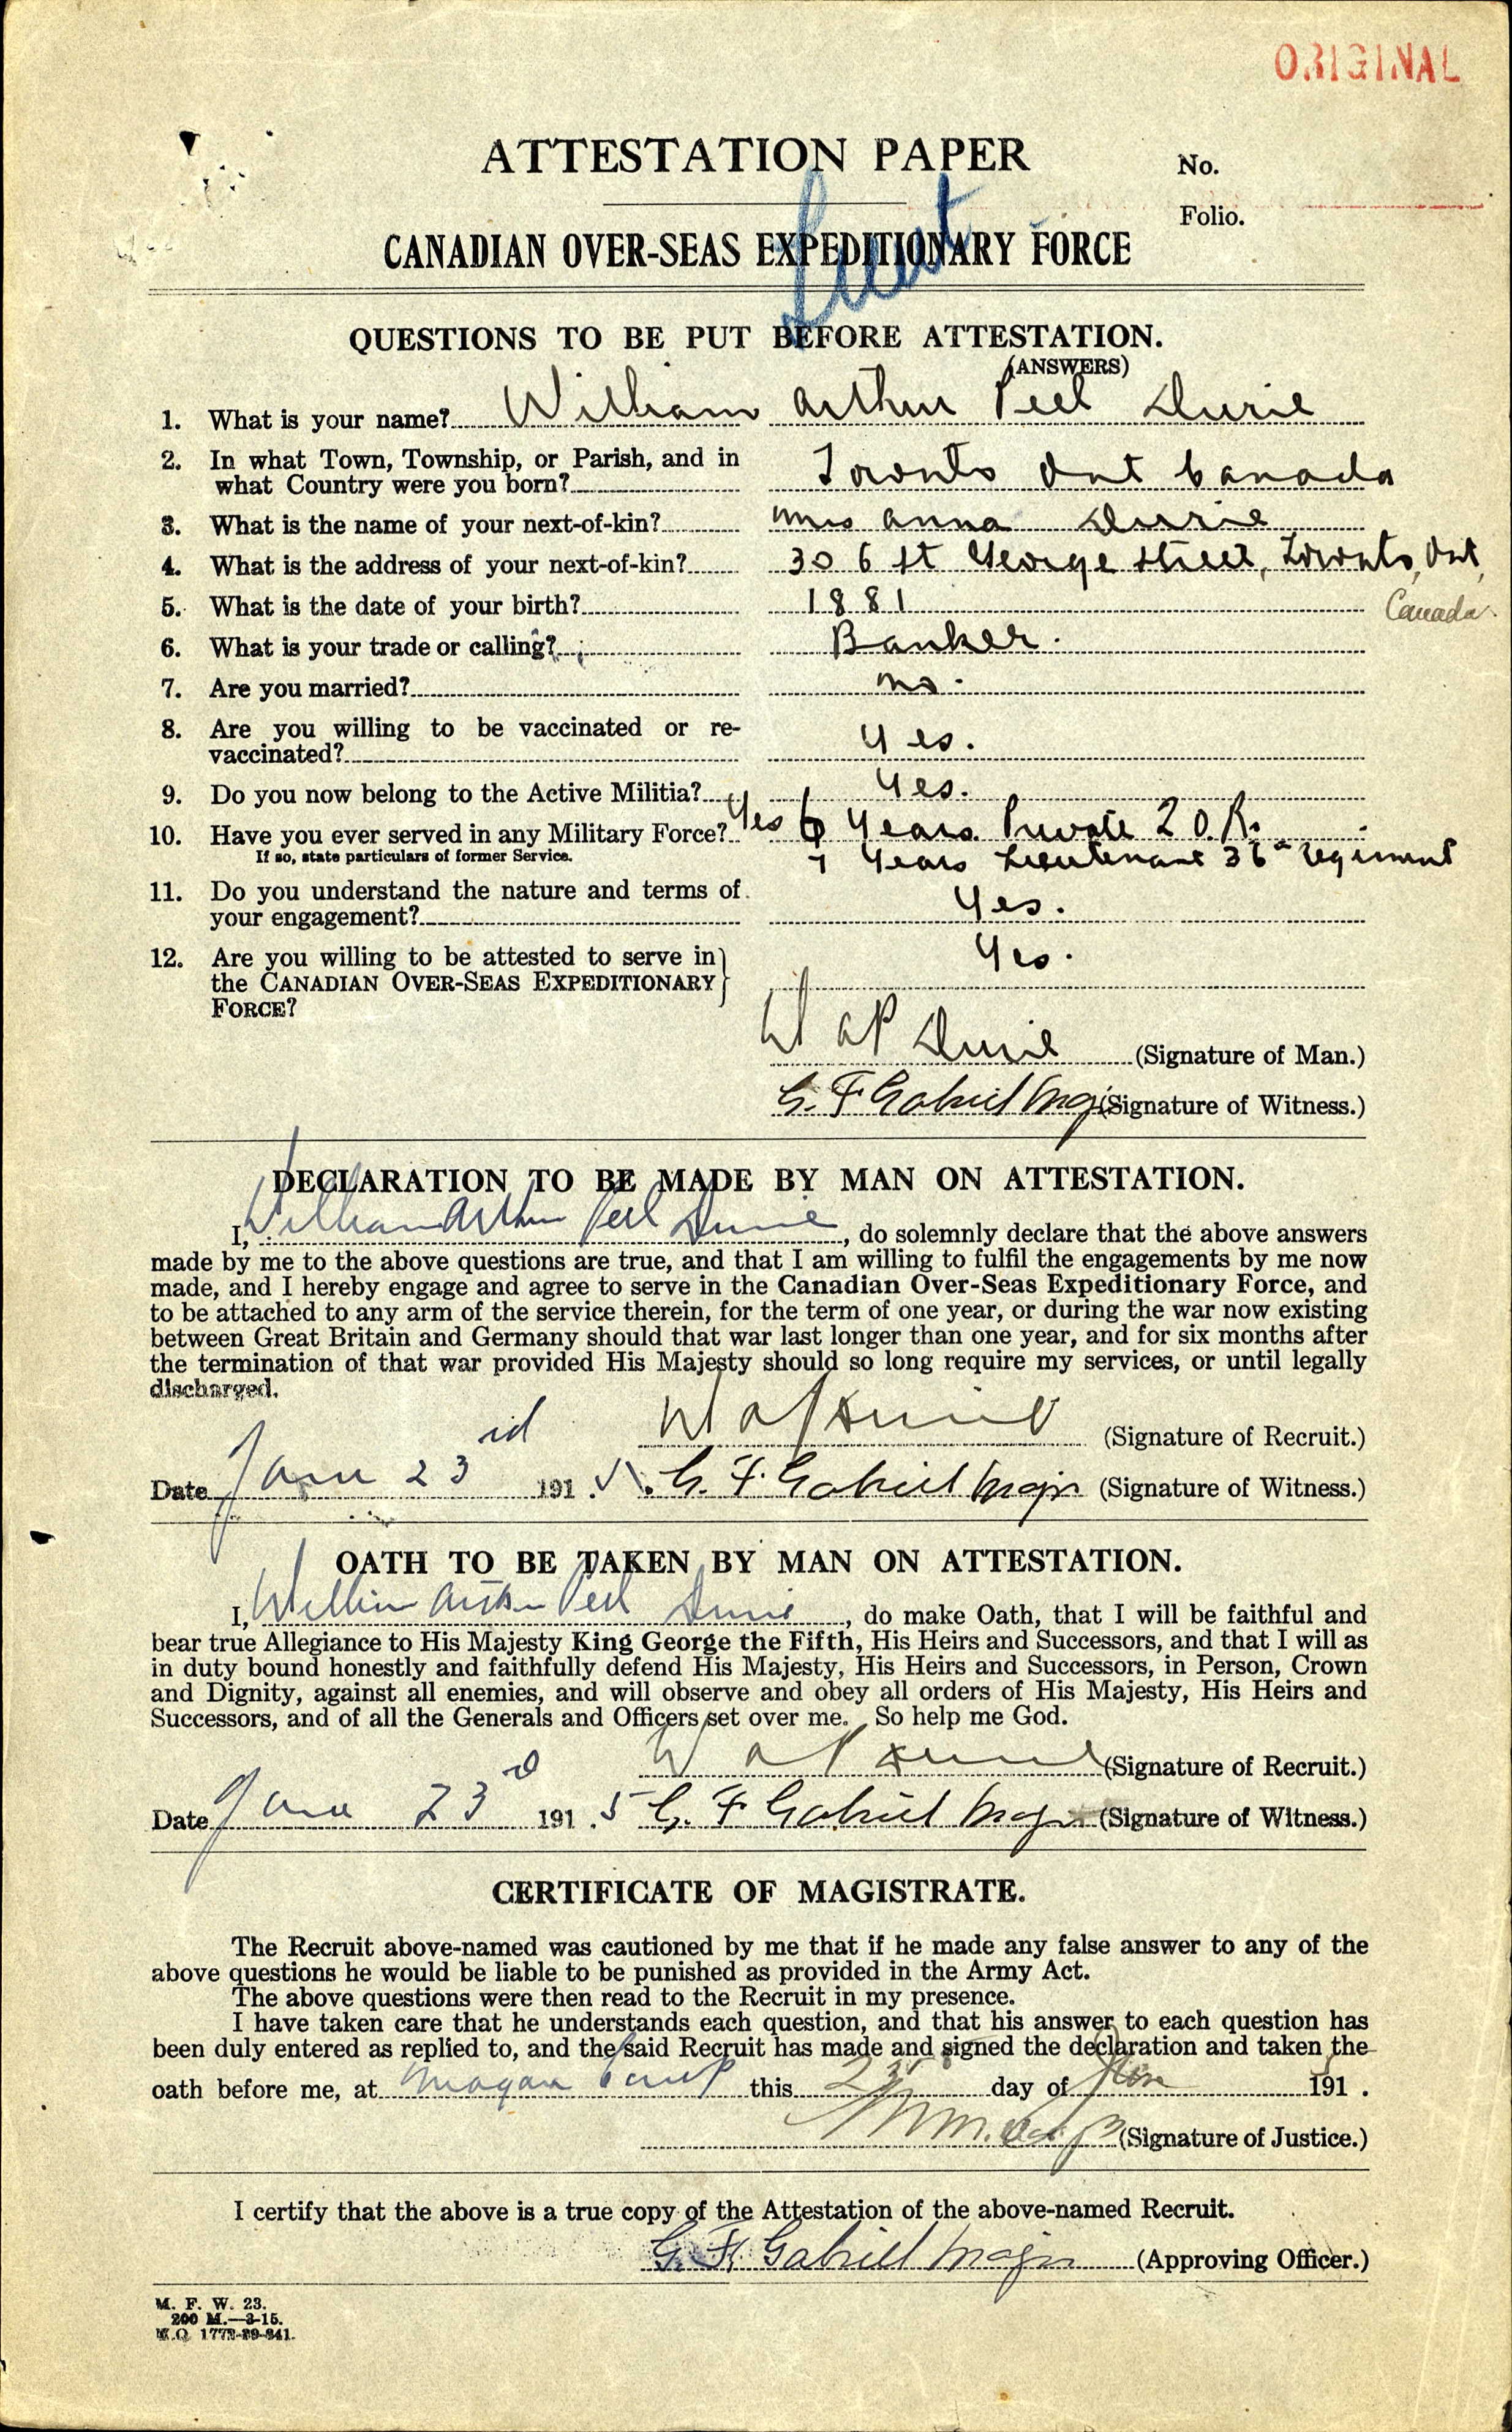 ORIGINAL
ATTESTATION PAPER
No.
Folio.
CANADIAN OVER-SEAS EXPEDITIONARY FORCE
Lieut
QUESTIONS TO BE PUT BEFORE ATTESTATION.
(ANSWERS)
1. What is your name? William Arthur Peel Durie
2. In what Town, Township, or Parish, and in
what Country were you born? Toronto Ont Canada
3. What is the name of your next-of-kin? Mrs Anna Durie
4. What is the address of your next-of-kin? 306 St George Street, Toronto, Ont,
Canada.
5. What is the date of your birth? 1881
6. What is your trade or calling? Banker.
7. Are you married? no.
8. Are you willing to be vaccinated or re-
vaccinated? Yes.
9. Do you now belong to the Active Militia? Yes.
10. Have you ever served in any Military Force? Yes 6 Years Private Q.O.R.
If so, state particulars of former Service. 7 Years Lieutenant 36th regiment
11. Do you understand the nature and terms of
your engagement? Yes.
12. Are you willing to be attested to serve in
the CANADIAN OVER-SEAS EXPEDITIONARY
FORCE? Yes.
W A P Durie (Signature of Man.)
G. F. Gabriel Major (Signature of Witness.)
DECLARATION TO BE MADE BY MAN ON ATTESTATION.
I, William Arthur Peel Durie, do solemnly declare that the above answers
made by me to the above questions are true, and that I am willing to fulfil the engagements by me now
made, and I hereby engage and agree to serve in the Canadian Over-Seas Expeditionary Force, and
to be attached to any arm of the service therein, for the term of one year, or during the war now existing
between Great Britain and Germany should that war last longer than one year, and for six months after
the termination of that war provided His Majesty should so long require my services, or until legally
discharged.
W A P Durie (Signature of Recruit.)
Date 23 191 . G. F. Gabriel Major (Signature of Witness.)
OATH TO BE TAKEN BY MAN ON ATTESTATION.
I, William Arthur Peel Durie, do make Oath, that I will be faithful and
bear true Allegiance to His Majesty King George the Fifth, His Heirs and Successors, and that I will as
in duty bound honestly and faithfully defend His Majesty, His Heirs and Successors, in Person, Crown
and Dignity, against all enemies, and will observe and obey all orders of His Majesty, His Heirs and
Successors, and of all the Generals and Officers set over me. So help me God.
W A P Durie (Signature of Recruit.)
Date 23 191.5 G. F Gabriel Major (Signature of Witness.)
CERTIFICATE OF MAGISTRATE.
The Recruit above-named was cautioned by me that if he made any false answer to any of the
above questions he would be liable to be punished as provided in the Army Act.
The above questions were then read to the Recruit in my presence.
I have taken care that he understands each question, and that his answer to each question has
been duly entered as replied to, and the said Recruit has made and signed the declaration and taken the
oath before me, at Niagara Camp this day of 191 .
(Signature of Justice.)
I certify that the above is a true copy of the Attestation of the above-named Recruit.
G. F. Gabriel Major (Approving Officer.)
M. F. W. 23.
200 M.—3-15.
H.Q. 1772-39-841.